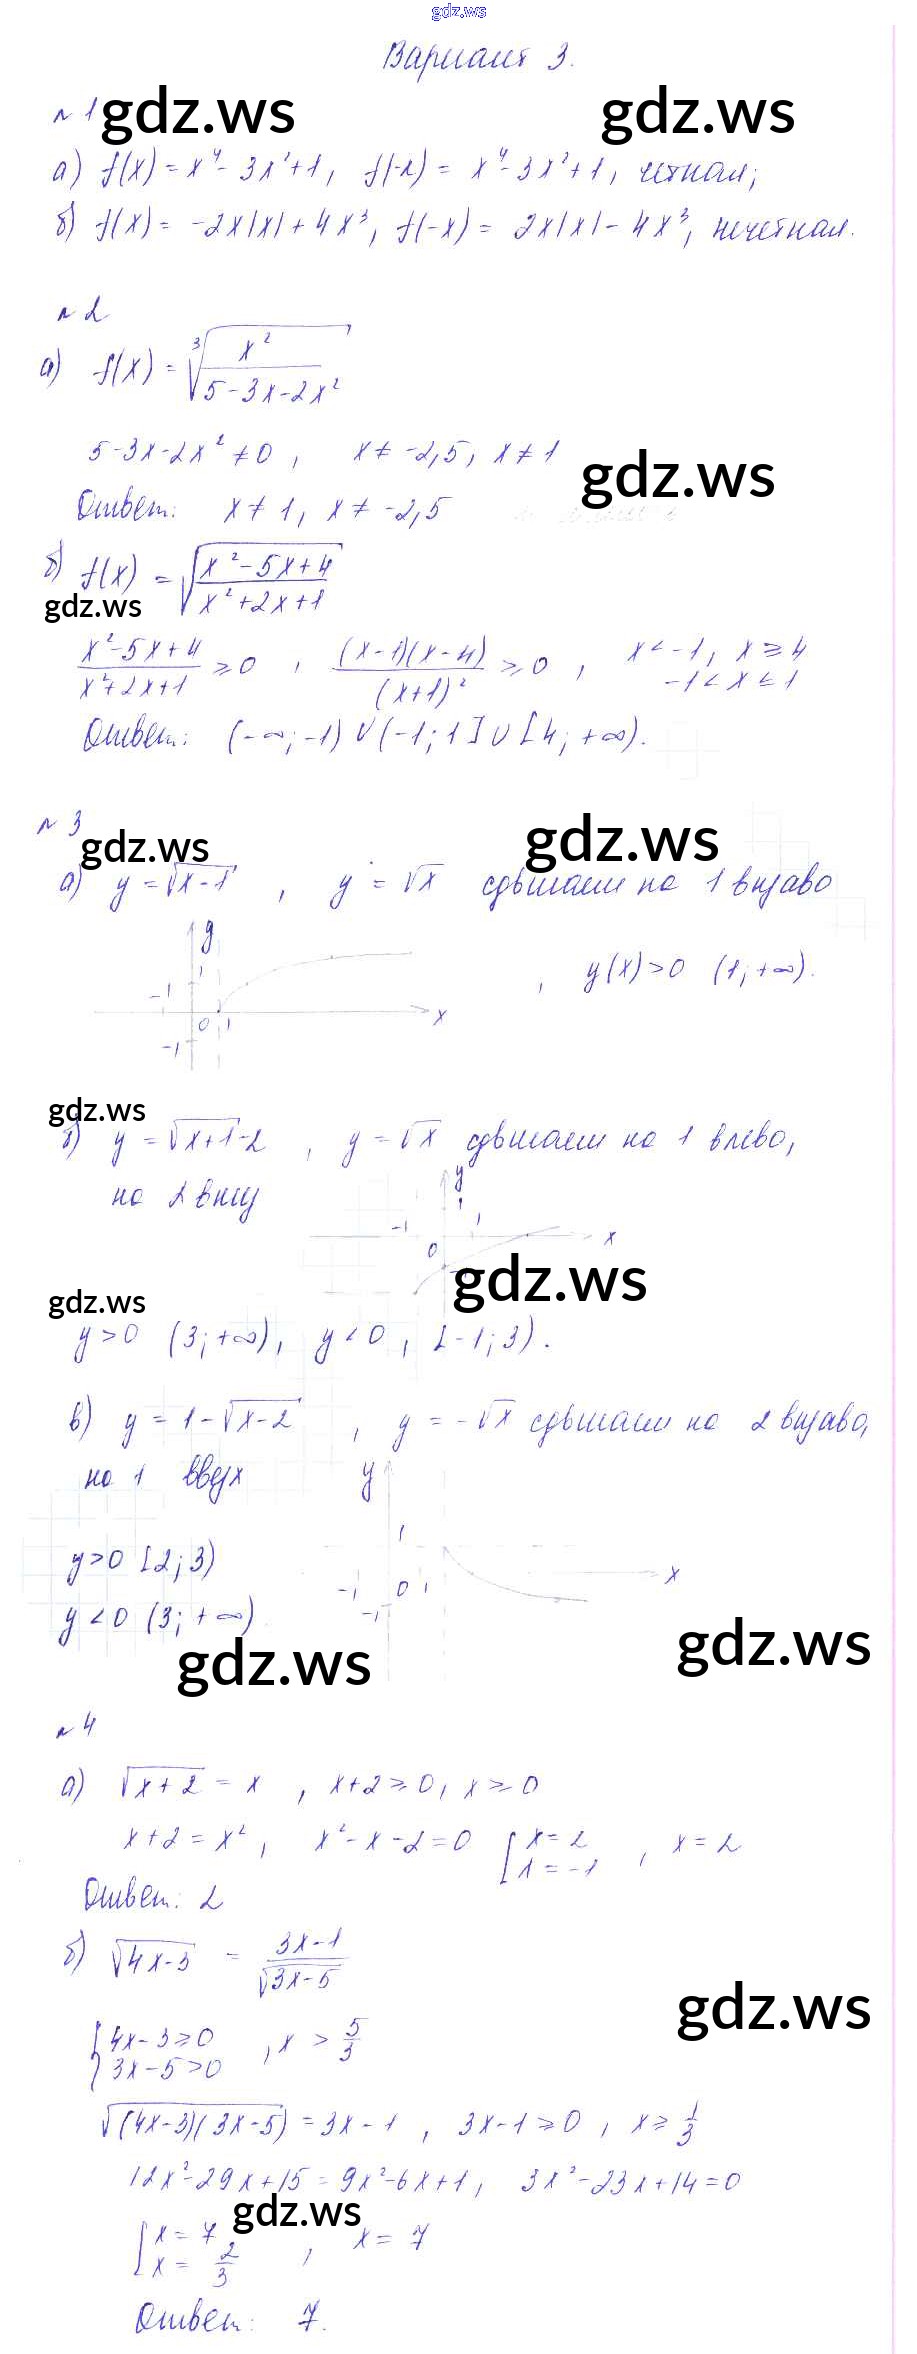 gdz.ws
Вариант 3.
№ 1
gdz.ws gdz.ws
а) f(x) = x⁴ - 3x² + 1, f(-x) = x⁴ - 3x² + 1, четная;
б) f(x) = -2x|x| + 4x³, f(-x) = 2x|x| - 4x³, нечетная.
№ 2
а) f(x) = ∛(x² / (5 - 3x - 2x²))
5 - 3x - 2x² ≠ 0, x ≠ -2,5, x ≠ 1
gdz.ws
Ответ: x ≠ 1, x ≠ -2,5
б) f(x) = √((x² - 5x + 4) / (x² + 2x + 1))
gdz.ws
(x² - 5x + 4) / (x² + 2x + 1) ≥ 0, (x-1)(x-4) / (x+1)² ≥ 0, x < -1, x ≥ 4
-1 < x ≤ 1
Ответ: (-∞; -1) ∪ (-1; 1] ∪ [4; +∞).
№ 3
gdz.ws gdz.ws
а) y = √(x-1), y = √x сдвигаем на 1 вправо
y
1
-1
0 1 x
-1
, y(x) > 0 (1; +∞).
gdz.ws
б) y = √(x+1) - 2, y = √x сдвигаем на 1 влево,
на 2 вниз
y
1
-1 1 x
0
gdz.ws
gdz.ws
y > 0 (3; +∞), y < 0, [-1; 3).
в) y = 1 - √(x-2), y = -√x сдвигаем на 2 вправо,
на 1 вверх
y
1
-1 0 1 x
-1
y > 0 [2; 3)
y < 0 (3; +∞).
gdz.ws gdz.ws
№ 4
а) √(x+2) = x, x+2 ≥ 0, x ≥ 0
x+2 = x², x² - x - 2 = 0 [ x = 2
x = -1, x = 2
Ответ: 2
б) √(4x-3) = (3x-1) / √(3x-5)
gdz.ws
{ 4x-3 ≥ 0
3x-5 > 0, x > 5/3
√((4x-3)(3x-5)) = 3x-1, 3x-1 ≥ 0, x ≥ 1/3
12x² - 29x + 15 = 9x² - 6x + 1, 3x² - 23x + 14 = 0
gdz.ws
[ x = 7
x = 2/3, x = 7
Ответ: 7.